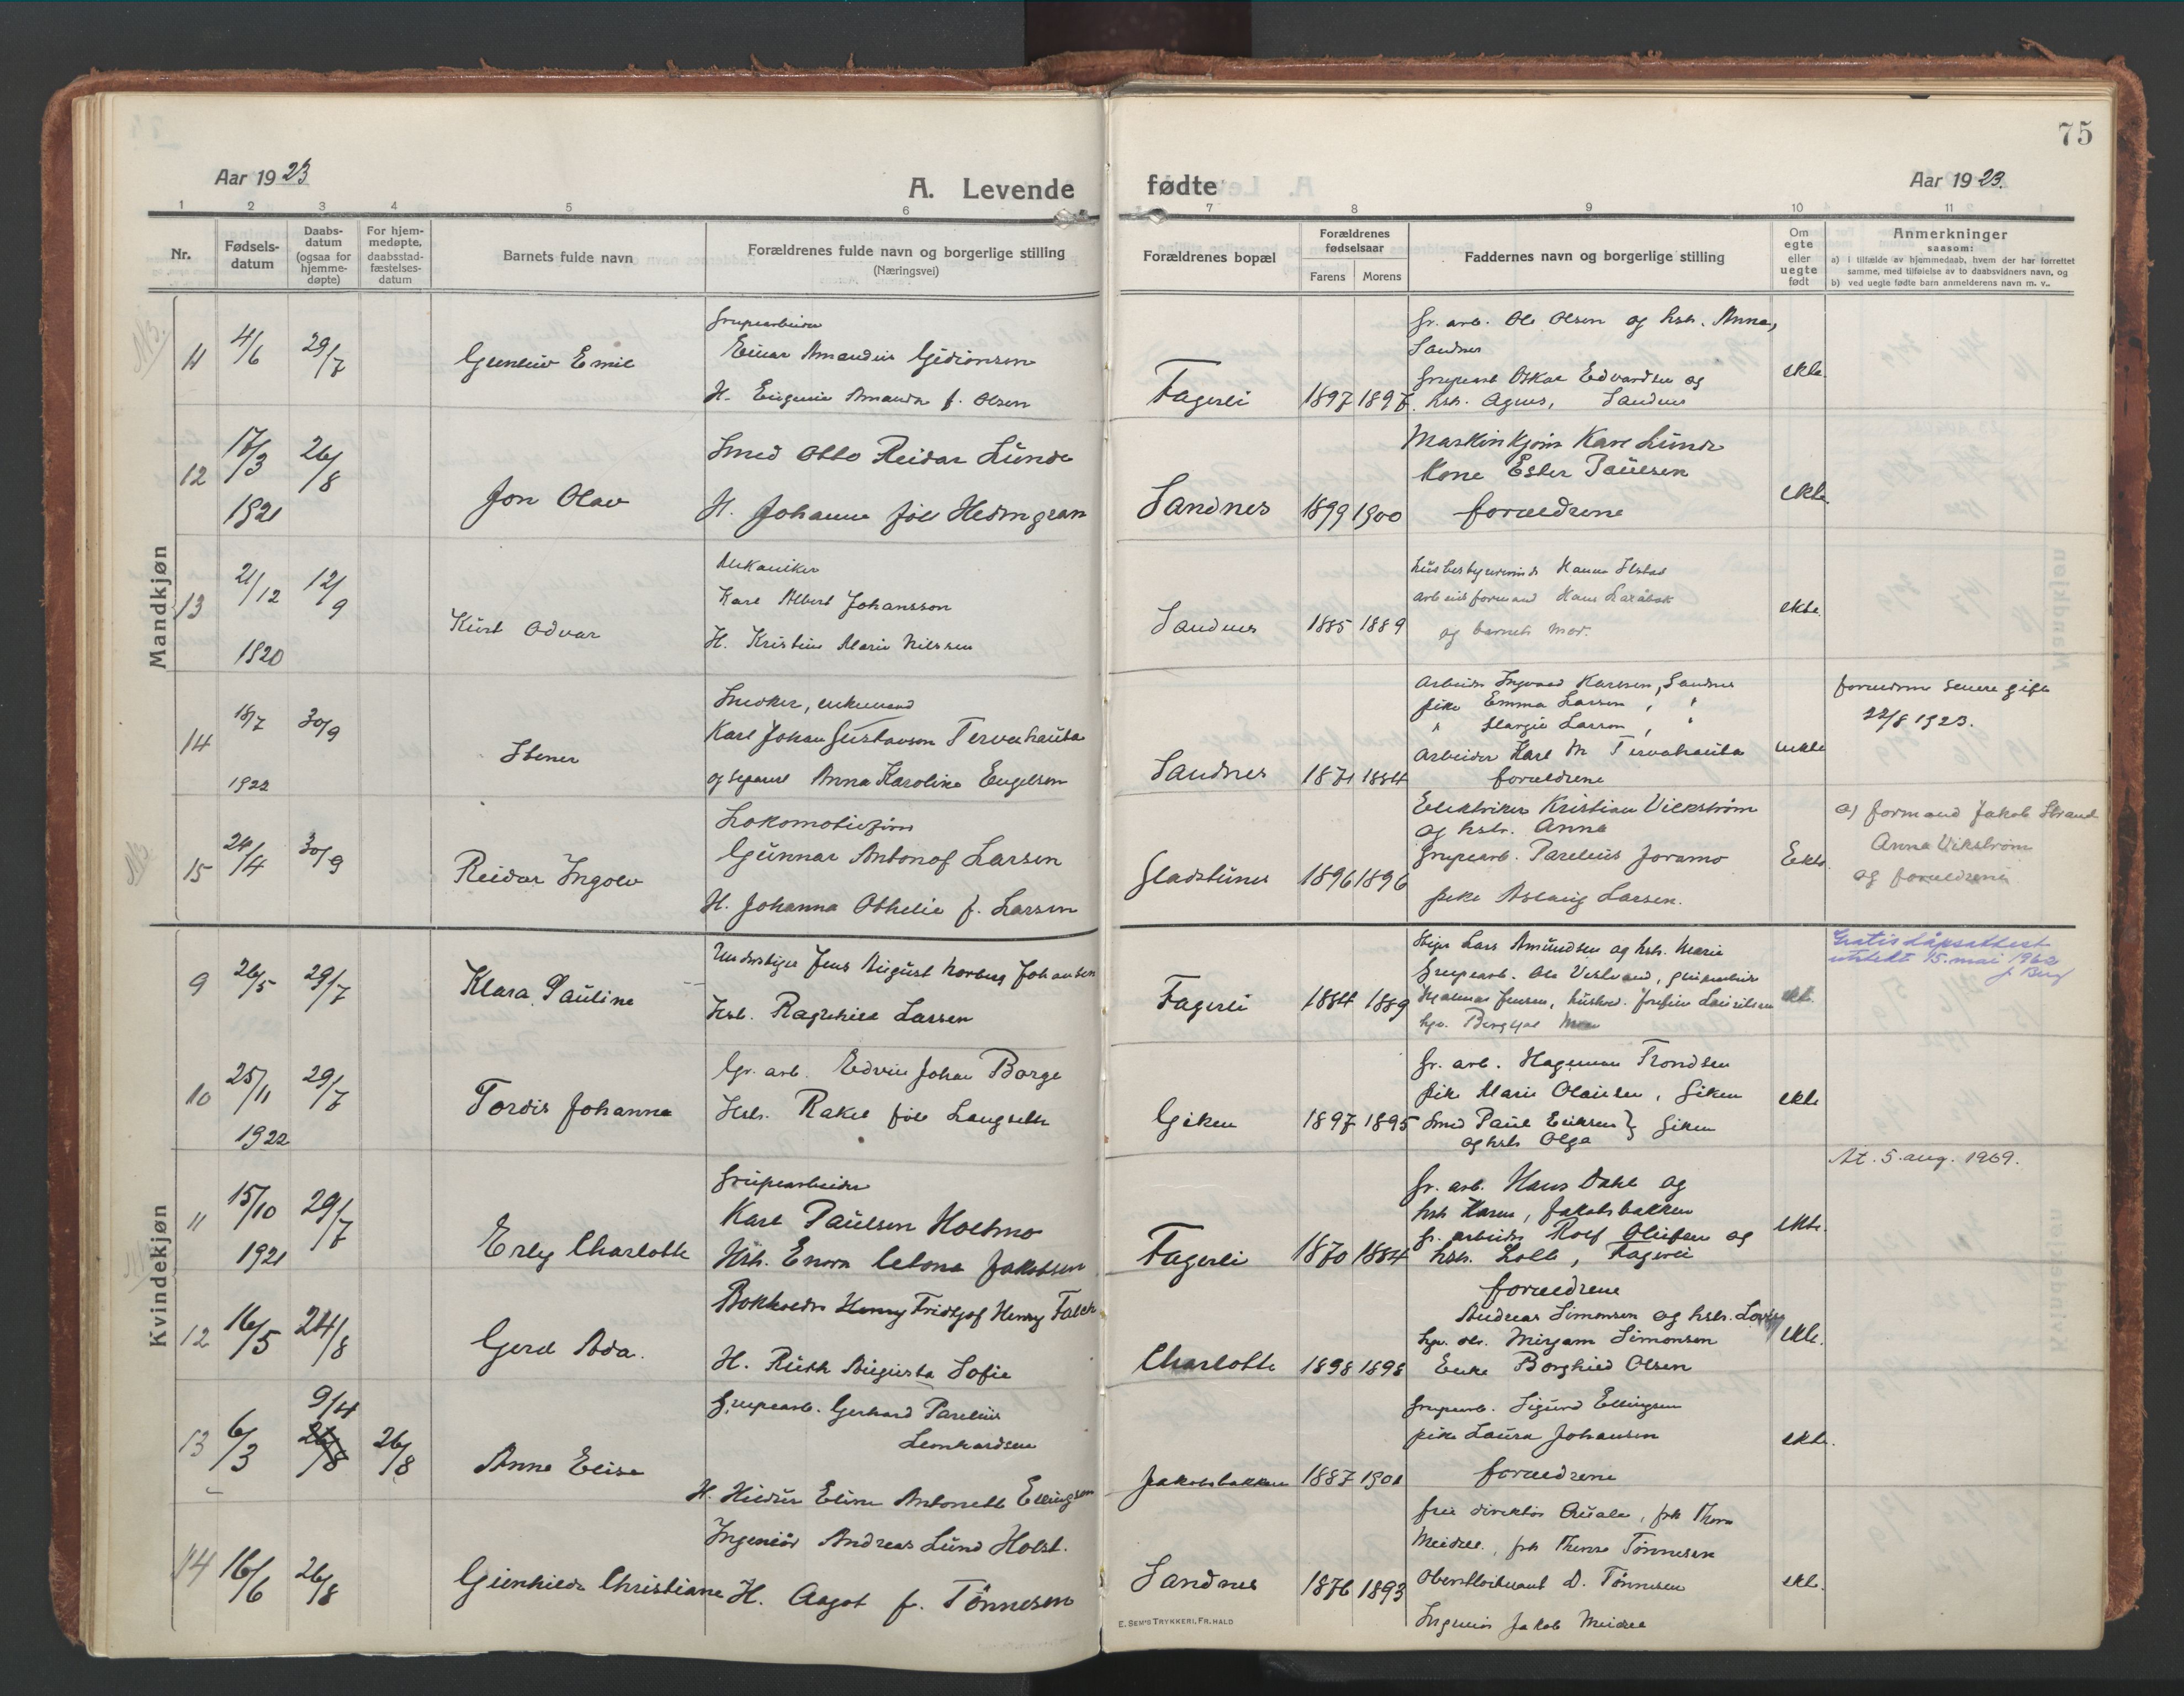 75
Aar 1923
A. Levende fødte
Aar 1923.
1 2 3 4 5 6 7 8 9 10 11
Nr.
Fødsels-datum
Daabs-datum (ogsaa for hjemme-døpte)
For hjem-medøpte, daabsstad-fæstelses-datum
Barnets fulde navn
Forældrenes fulde navn og borgerlige stilling
(Næringsvei)
Forældrenes bopæl
Forældrenes fødselsaar
Farens Morens
Faddernes navn og borgerlige stilling
Om egte eller uegte født
Anmerkninger
saasom:
a) i tilfælde av hjemmedaab, hvem der har forrettet samme, med tilføielse av to daabsvidners navn, og
b) ved uegte fødte barn anmelderens navn m. v..
Mandkjøn
11 4/6 29/7
Gunleiv Emil
Grupearbeider
Einar Amandus Gidionsen
H. Eugenie Amanda f. Olsen
Fagerli 1897 1897
Gr. arb. Ole Olsen og hstr. Anna,
Sandnes
Grupearb Oskar Edvardsen og
hstr. Agnes, Sandnes
ekte.
12 17/3 1921 26/8
Jon Olav
Smed Otto Reidar Lunde
H. Johanne föd Hedmgran
Sandnes 1899 1900
Maskinkjörer Karl Lunde
Kone Ester Paulsen
forældrene
ekte.
13 21/12 1920 12/9
Kurt Odvar
Mekaniker
Karl Albert Johansson
H. Kristine Marie Nilssen
Sandnes 1885 1889
Arbeidsformand Hans
og barnets mor.
ekte.
14 18/7 1922 30/9
Stener
Snedker, enkemand
Karl Johan Gustavson Tervahauta
og separert Anna Karoline Engelsen
Sandnes 1871 1884
Arbeider Ingvard Karlsen, Sandnes
pike Emma Larsen, "
" Margie Larsen, "
Arbeider Karl M Tervahauta
forældrene
uekte
forældrene senere gift
22/8 1923.
15 24/4 30/9
Reidar Ingolv
Lokomotivfører
Gunnar Antonof Larsen
H. Johanna Othelie f. Larsen
Gladstunes 1896 1896
Elektriker Kristian Vickström
og hstr. Anna
Grupearb. Parelius Joramo
pike Aslaug Larsen.
Ekte.
a) formand Jakob Strand
Anna Vikström
og forældrene
Kvindekjøn
9 26/5 29/7
Klara Pauline
Understiger Jens August Norberg Johansen
Hstr. Ragnhild Larsen
Fagerli 1884 1889
Stiger Lars Amundsen og hstr. Marie
Grupearb. Ole Vesterand,
Hjalmar Jensen, Josefine Lauritsen
ekte.
Gratis dåpsattest
utstedt 15. mai 1962
J. Berg
10 25/11 1922 29/7
Tordis Johanna
Gr. arb. Edvin Johan Borge
Hstr. Rakel föd Langseth
Giken 1897 1895
Gr. arb. Hageman Trondsen
pike Marie Olausen, Giken
Smed Paul Eriksen } Giken
og hstr Olga
ekte
11 15/10 1921 29/7
Erly Charlotte
Grupearbeider
Karl Paulsen Holtmo
Hstr. Enora Celona Jakobsen
Fagerli 1870 1884
Gr. arb. Hans Dahl og
hstr Karen, Jakobsbakken
Gr. arbeider Rolf Olufsen og
hstr. Lolle, Fagerli
forældrene
ekte.
At. 5. aug. 1969.
12 16/5 24/8
Gerd Ada.
Bokholder Henry Fridtjof Henry Falch
H. Ruth Augusta Sofie
Charlotte 1898 1898
Andreas Simonsen og hstr. Lovise
Mirjam Simonsen
Enke Borghild Olsen
ekte.
13 6/3 9/4 26/8 26/8
Anne Elise
Grupearb. Gerhard Parelius
Leonhardsen
H. Hildur Eline Antonette Ellingsen
Jakobsbakken 1887 1901
Grupearb. Sigurd Ellingsen
pike Laura Johansen
forældrene
ekte.
14 16/6 26/8
Gunhilde Christiane
Ingeniör Andreas Lund Holst.
H. Aagot f. Tönnesen
Sandnes 1876 1893
frue direktör Quale, frk Thora
Meidell, frk Therese Tönnesen
Oberstlöitenant D. Tönnesen
Ingeniör Jakob Meidell
ekte.
E. SEM'S TRYKKERI, FR.HALD